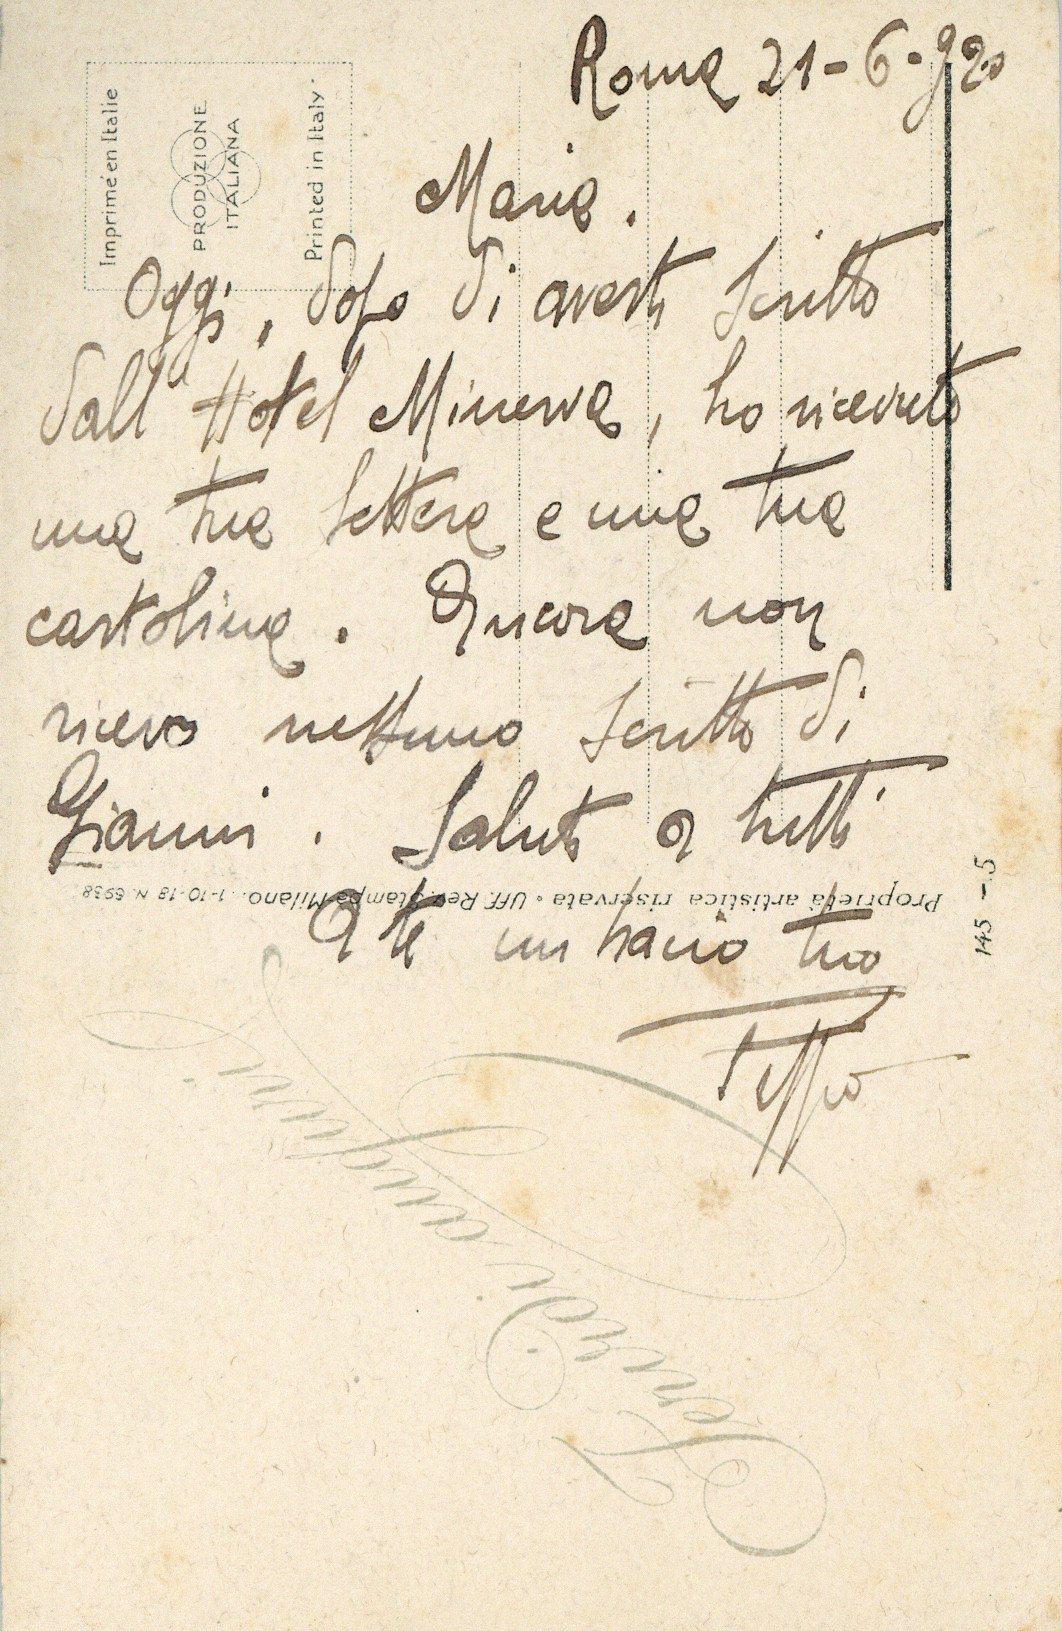 Roma 21-6-920
Maria.
Oggi, dopo di averti scritto
dall'Hotel Minerva, ho ricevuto
una tua lettera e una tua
cartolina. Ancora non
ricevo nessuno scritto di
Gianni. Saluti a tutti
A te un bacio tuo
Peppo
Imprimé en Italie
PRODUZIONE
ITALIANA
Printed in Italy
Proprietà artistica riservata - Uff. Rev. Stampa Milano. 1-10-18 N. 6938
145-5